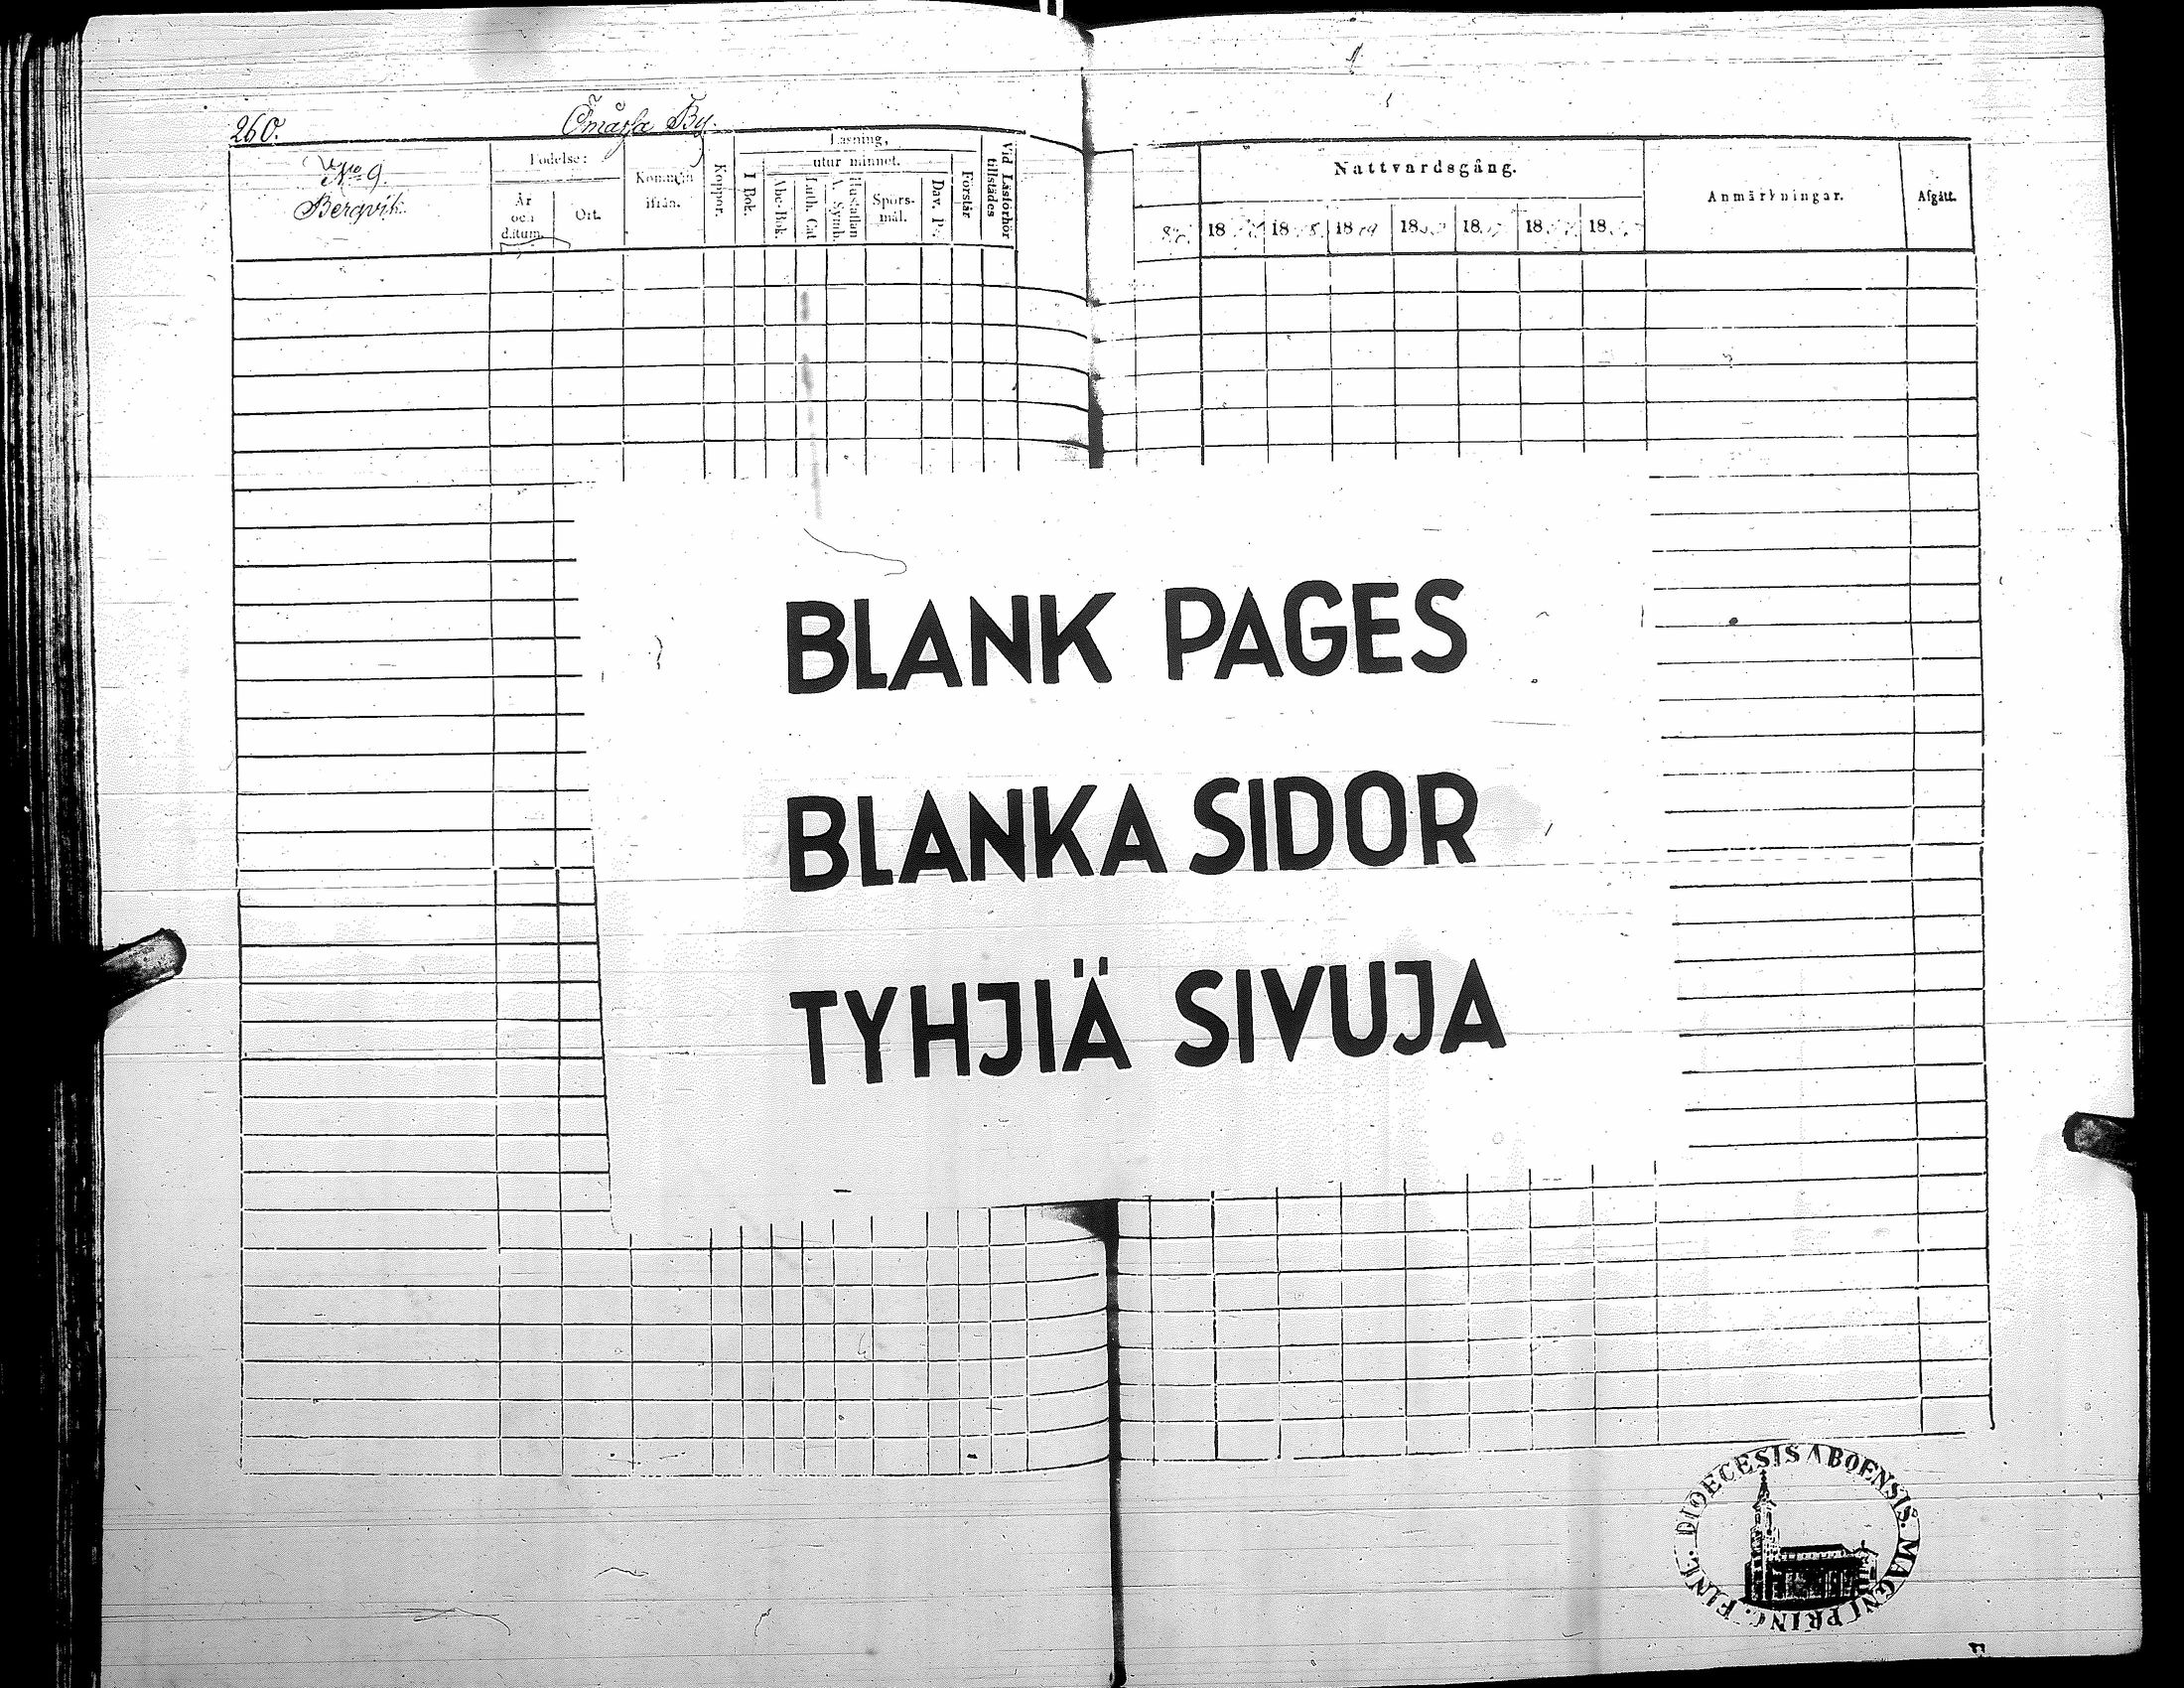 260. Ömossa By.
No 9
Bergvik.
Födelse:
År och datum.
Ort.
Kommen ifrån.
Koppor.
Läsning,
I Bok.
utur minnet.
Abc-Bok.
Luth. Cat
A. Symb.
Hustaflan
Spörs-mål.
Dav. Ps.
Förstår
Vid Läsförhör tillstädes
Nattvardsgång.
18 18 18 18 18 18 18
Anmärkningar.
Afgått.
BLANK PAGES
BLANKA SIDOR
TYHJIÄ SIVUJA
DIOECESIS ABOENSIS. MAGNI PRINC. FINL.